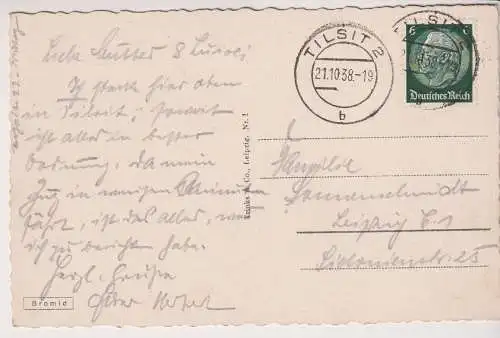 Liebe Mutter &
Ich steck hier oben
in Tilsit, soweit
ist alles in bester
Ordnung, da mein
Zug in wenigen Minuten
fährt, ist das alles, was
ich zu berichten habe.
Herzl. Grüße
TILSIT 2
21.10.38-19
b
TILSIT
6 6
Deutsches Reich
& Co., Leipzig, Nr. 1
Sonnenschmidt
Leipzig C. 1
Sidonienstr. 25
Bromid